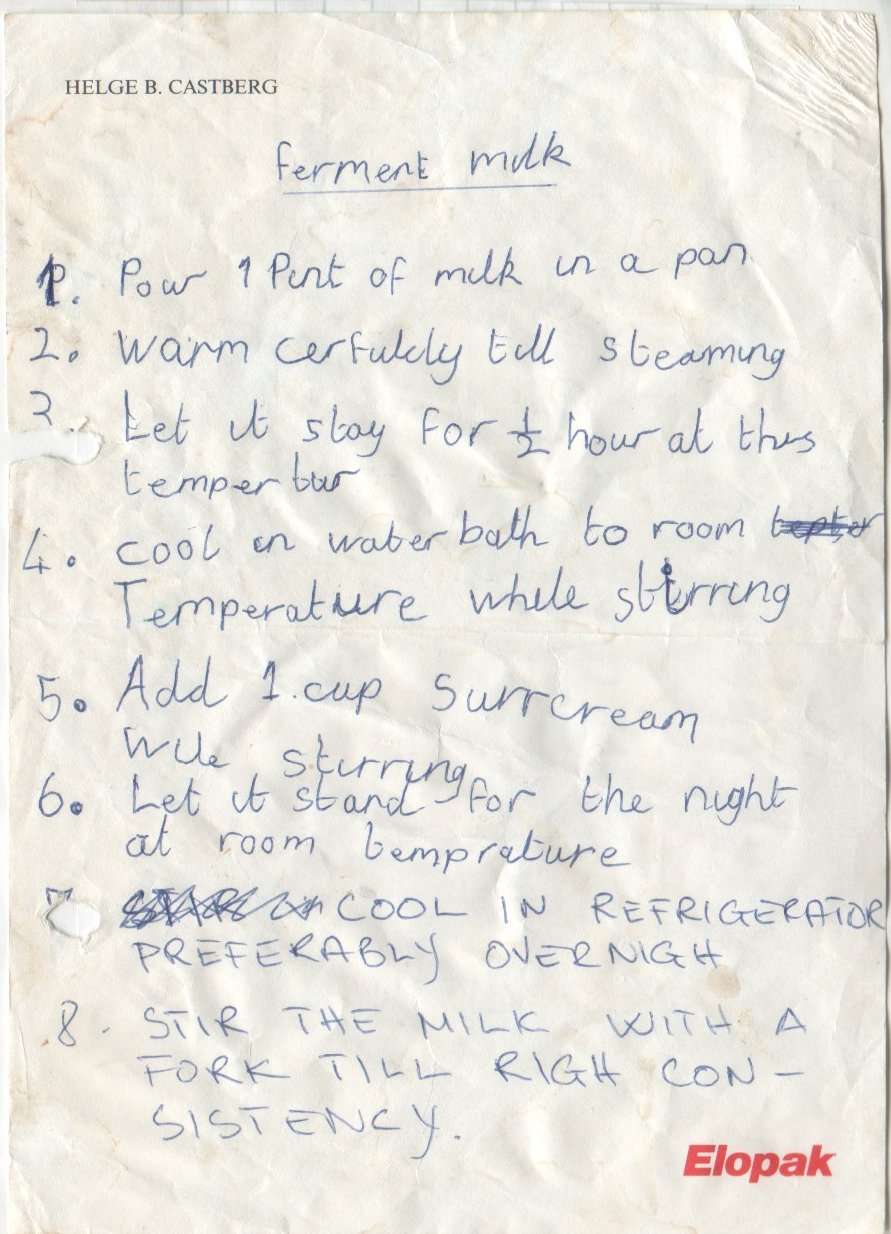 HELGE B. CASTBERG
ferment milk
1. Pour 1 Pint of milk in a pan
2. Warm cerfuldly till steaming
3. Let it stay for ½ hour at this
tempertur
4. cool in water bath to room
Temperature while stirring
5. Add 1. cup Surrcream
Wile stirring
6. Let it stand for the night
at room temprature
7. COOL IN REFRIGERATOR
PREFERABLY OVERNIGH
8. STIR THE MILK WITH A
FORK TILL RIGH CON-
SISTENCY.
Elopak